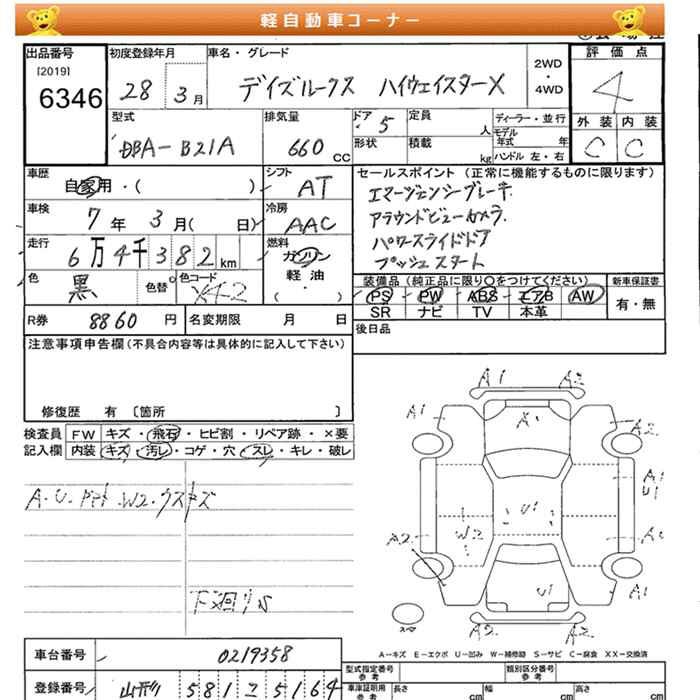 軽自動車コーナー
出品番号 初度登録年月 車名・グレード 評価点
[2019]
6346
28 3月 デイズルークス ハイウェイスターX 2WD・4WD 4
型式 排気量 ドア 定員 ディーラー・並行
DBA-B21A 660cc 5 人 モデル年式 年
形状 積載 kg ハンドル 左・右
外装 内装
C C
車歴 自家用・( ) シフト AT
車検 7年 3月( 日) 冷房 AAC
走行 6万4千382km 燃料 ガソリン 軽油・( )
色 黒 色替 色コード X42
セールスポイント(正常に機能するものに限ります)
エマージェンシーブレーキ
アラウンドビューカメラ.
パワースライドドア
プッシュスタート
装備品(純正品に限り○をつけてください) 新車保証書
PS PW ABS エアB AW 有・無
SR ナビ TV 本革
R券 8860円 名変期限 月 日
後日品
注意事項申告欄(不具合内容等は具体的に記入して下さい)
修復歴 有 〔箇所 〕
検査員記入欄 FW キズ・飛石・ヒビ割・リペア跡・×要
内装 キズ・汚レ・コゲ・穴・スレ・キレ・破レ
A.U.P
W2.ウスキズ
下廻りS
A1 A2
A1 A A2
A1
U1
U1
W2
A2
U1 A1
A2 A2
スペア
A-キズ E-エクボ U-凹み W-補修跡 S-サビ C-腐食 XX-交換済
車台番号 0219358
登録番号 581 5164
型式指定番号 参考 類別区分番号 参考
車庫証明用 参考 長さ 幅 高さ